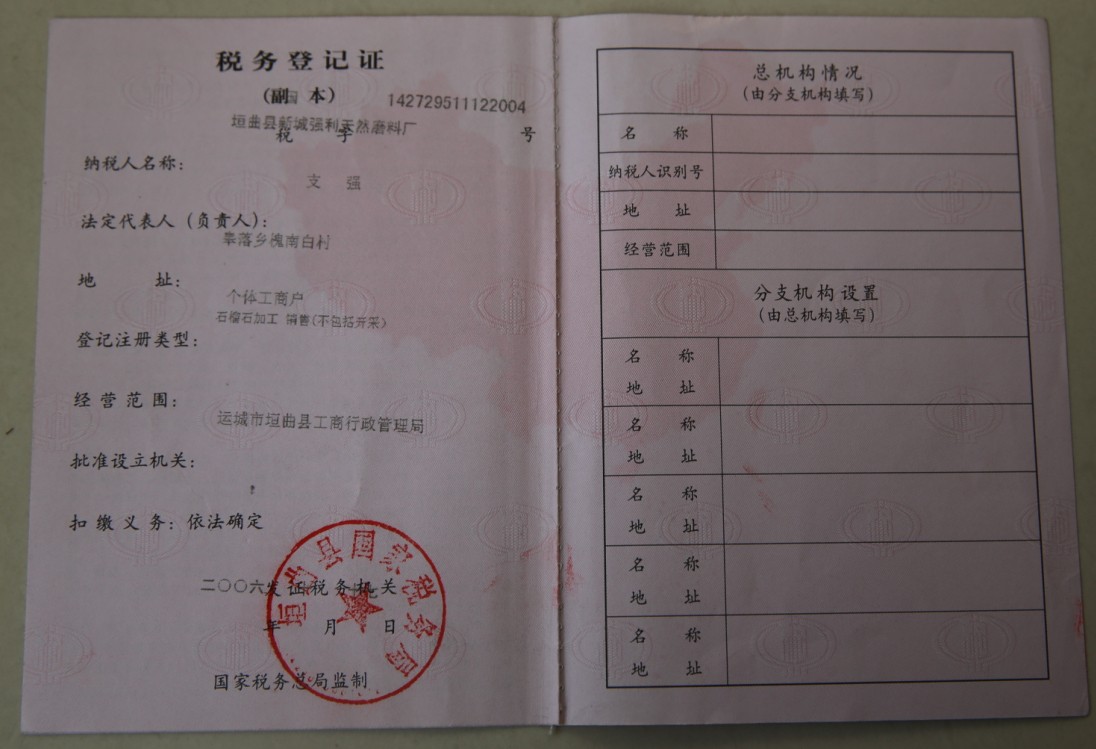 税务登记证
(副 本)
142729511122004
垣曲县新城强利天然磨料厂
税 字 号
纳税人名称：
支 强
法定代表人（负责人）：
皋落乡槐南白村
地 址：
个体工商户
石榴石加工 销售(不包括开采)
登记注册类型：
经营范围：
运城市垣曲县工商行政管理局
批准设立机关：
扣缴义务：依法确定
垣曲县国家税务局
二〇〇六
发证税务机关
年 月 日
国家税务总局监制
总机构情况
(由分支机构填写)
名 称
纳税人识别号
地 址
经营范围
分支机构设置
(由总机构填写)
名 称
地 址
名 称
地 址
名 称
地 址
名 称
地 址
名 称
地 址